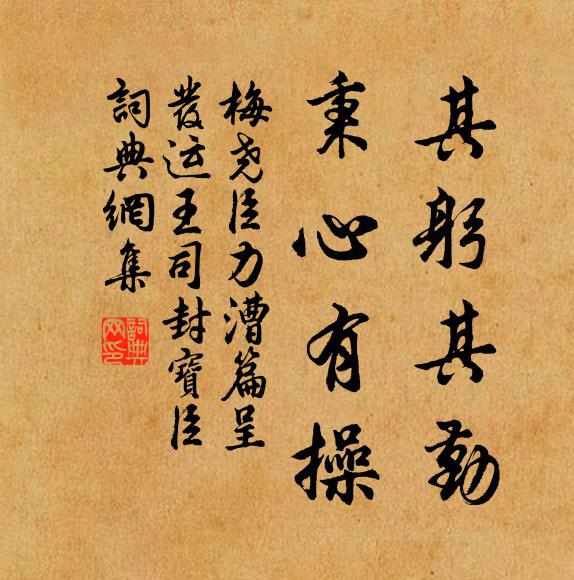 其躬其勤
秉心有操
梅尧臣力漕篇呈
發运王司封寶臣
詞典網集
詞典網印